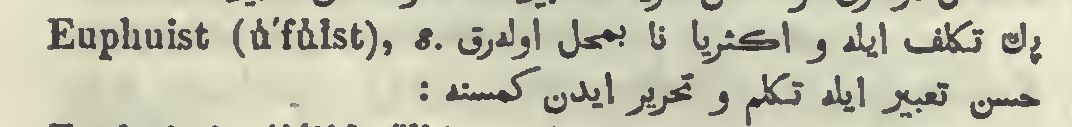 Euphuist (ŭ′fŭĭst), s. پك تكلف ایله و اكثریا نا بمحل اوله‌رق
حسن تعبیر ایله تكلم و تحریر ایدن كمسنه :